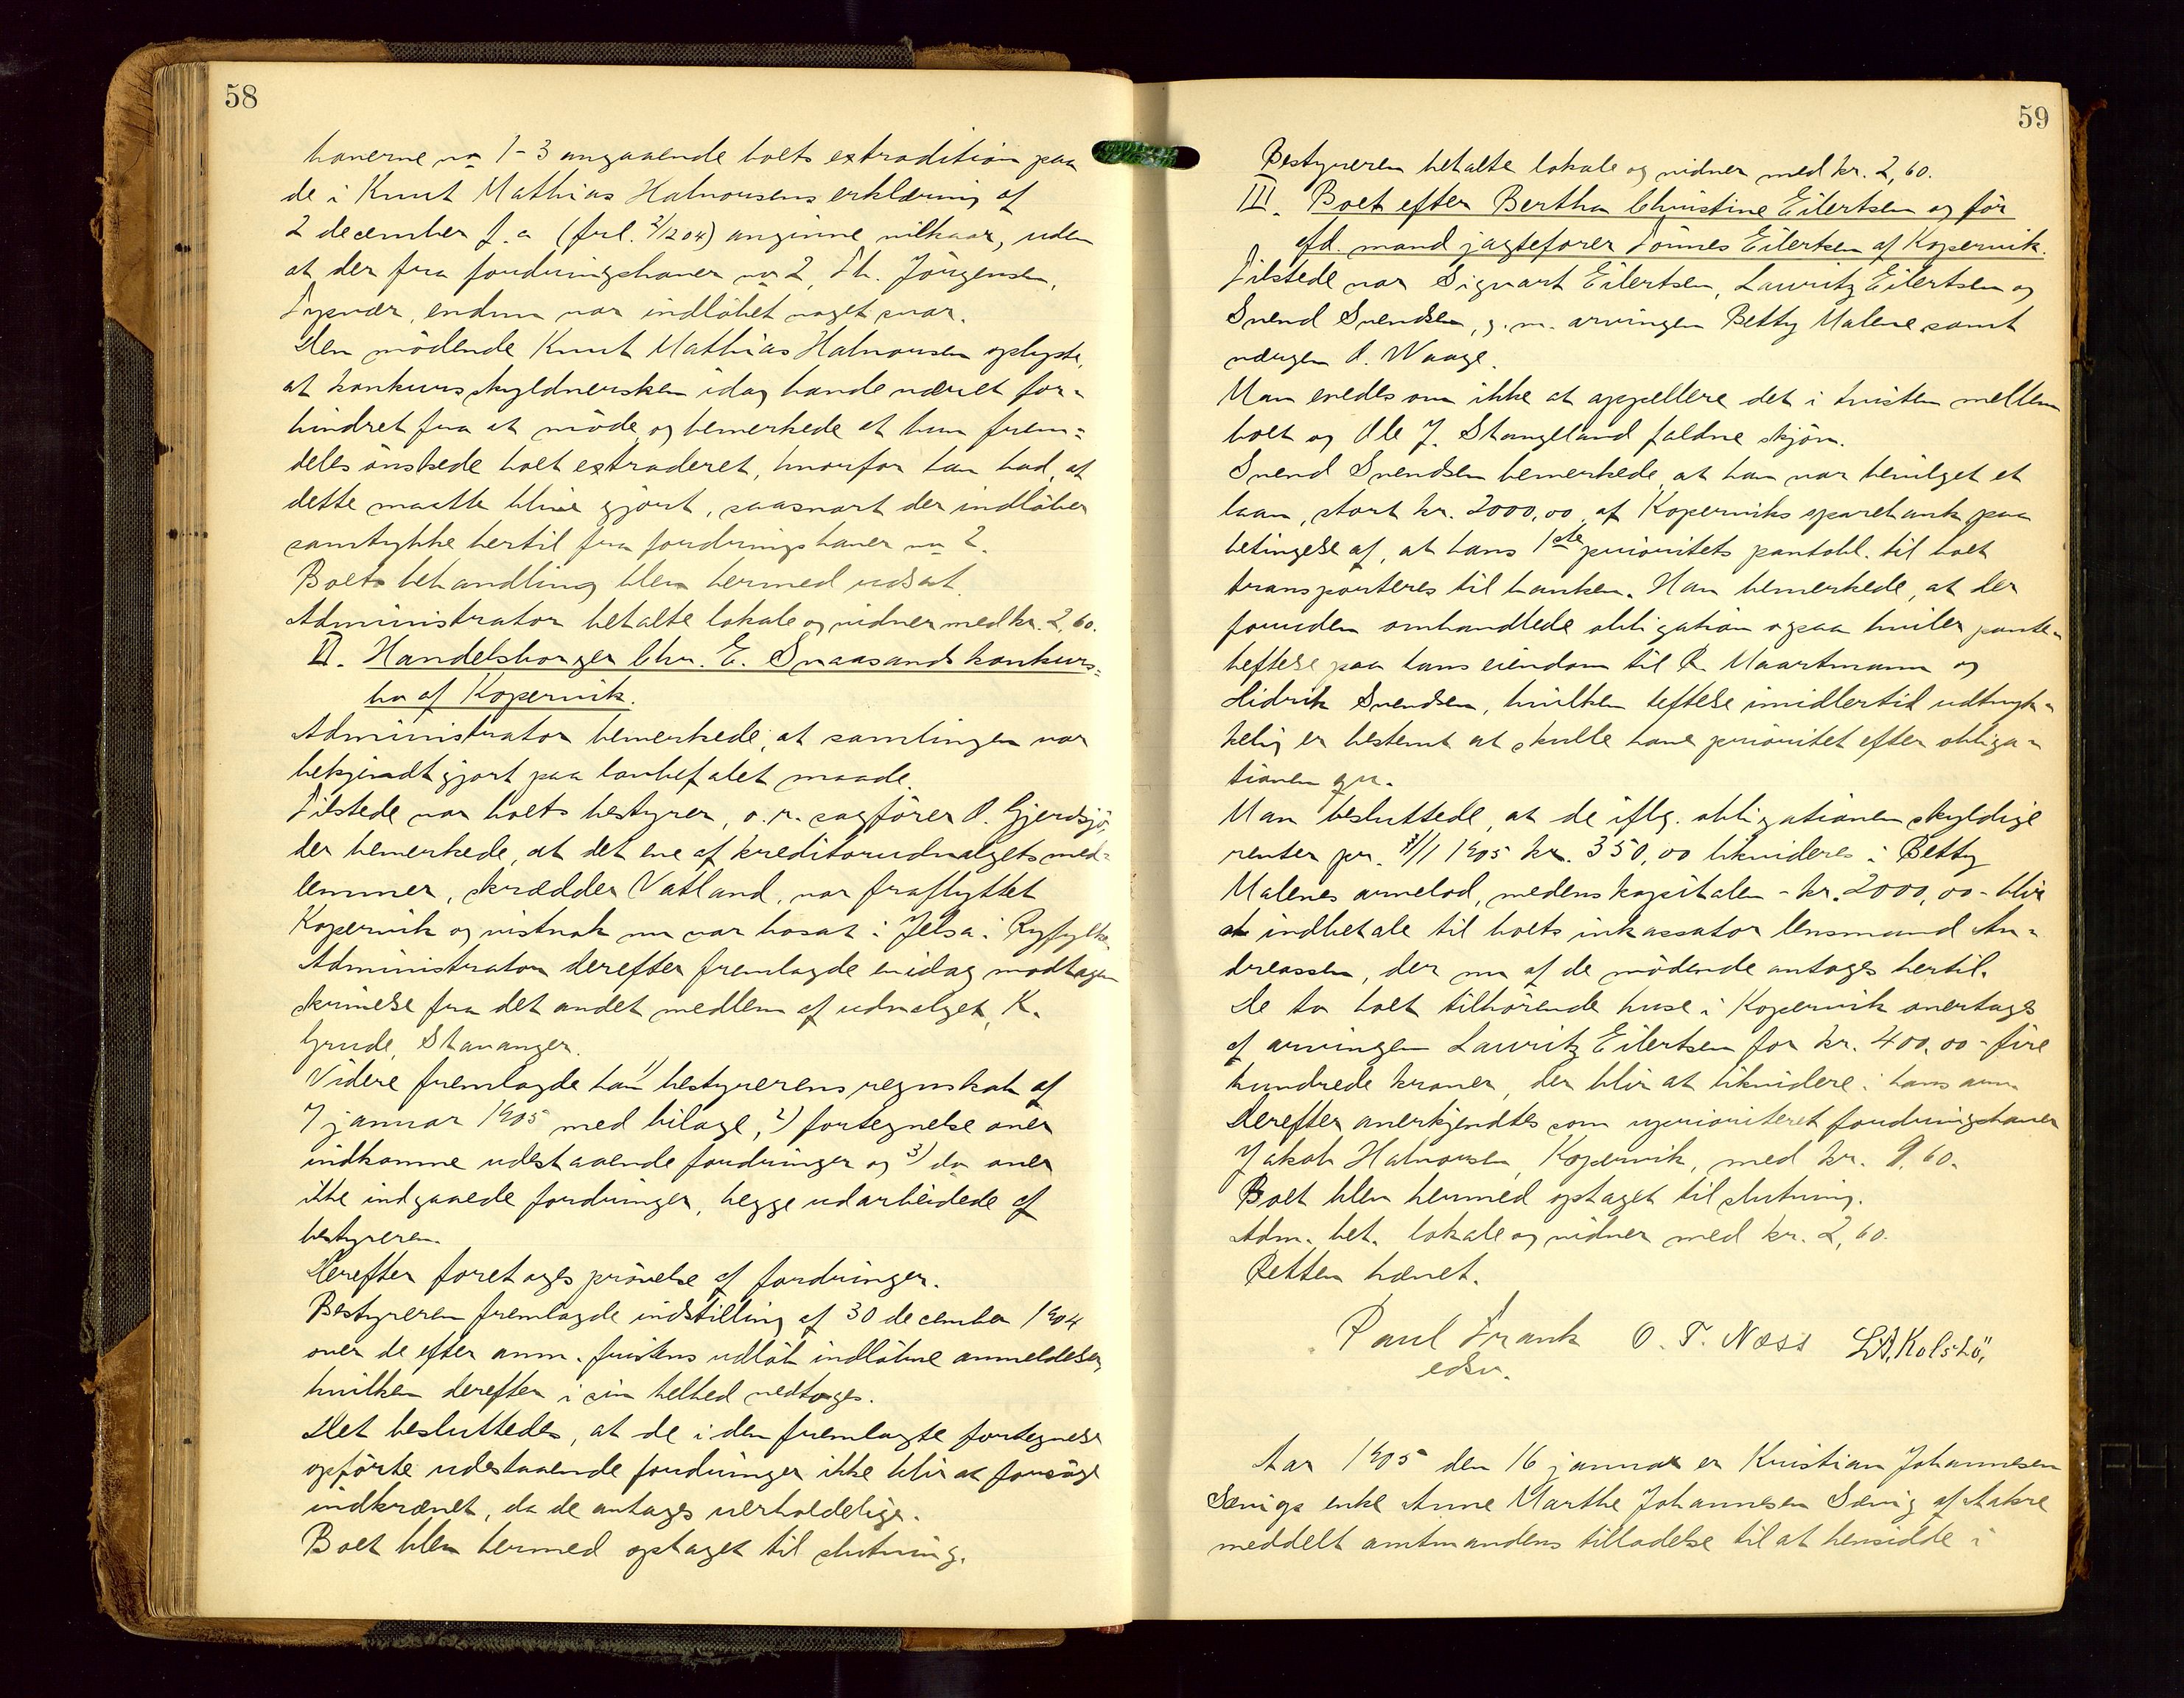 58
haverne no 1-3 angaaende boets extradition paa
de i Knut Mathias Halvorsens erklæring af
2 december f.a (frl. 2/12 04) angivne vilkaar, uden
at der fra fordringshaver no 2, Th. Jörgensen,
Tysvær, endnu var indløbet noget svar.
Den mödende Knut Mathias Halvorsen oplyste,
at konkursskyldnersken idag havde været for-
hindret fra at möde og bemerkede at hun frem-
deles önskede boet extraderet, hvorfor han bad, at
dette maatte blive gjort, saasnart der indlöber
samtykke hertil fra fordringshaver no 2.
Boets behandling blev hermed udsat.
Administrator betalte lokale og vidner med kr. 2,60.
II. Handelsborger Chr. E. Snaasands konkurs-
bo af Kopervik.
Administrator bemerkede, at samlingen var
bekjendtgjort paa lovbefalet maade.
Tilstede var boets bestyrer, o.r. sagförer O. Gjerdsjö,
der bemerkede, at det ene af kreditorudvalgets med-
lemmer, skrædder Vatland, var fraflyttet
Kopervik og vistnok nu var bosat i Jelsa i Ryfylke.
Administrator derefter fremlagde en idag modtagen
skrivelse fra det andet medlem af udvalget, K.
Grude, Stavanger.
Videre fremlagde han 1) bestyrerens regnskab af
7 januar 1905 med bilage, 2) fortegnelse over
indkomne udestaaende fordringer og 3) do over
ikke indgaaede fordringer, begge udarbeidede af
bestyreren.
Derefter foretoges prövelse af fordringer.
Bestyreren fremlagde indstilling af 30 december 1904
over de efter anm. fristens udlöb indlöbne anmeldelser,
hvilken derefter i sin helhed vedtoges.
Det besluttedes, at de i den fremlagte fortegnelse
opförte udestaaende fordringer ikke blir at forsöge
indkrævet, da de antages uerholdelige.
Boet blev hermed optaget til slutning.
59
Bestyreren betalte lokale og vidner med kr. 2,60.
III. Boet efter Bertha Christine Eilertsen og för
afd. mand jagtefører Tönnes Eilertsen af Kopervik.
Tilstede var Sigvart Eilertsen, Lauritz Eilertsen og
Svend Svendsen, g.m. arvingen Betty Malene samt
værgen O. Waage.
Man enedes om ikke at appellere det i tvisten mellem
boet og Ole J. Stangeland faldne skjön.
Svend Svendsen bemerkede, at han var bevilget et
laan, stort kr. 2000,00, af Koperviks sparebank paa
betingelse af, at hans 1ste prioritets pantobl. til boet
transporteres til banken. Han bemerkede, at der
foruden omhandlede obligation ogsaa hviler pante-
heftelse paa hans eiendom til R. Maartmann og
Hidrik Svendsen, hvilken heftelse imidlertid udtryk-
kelig er bestemt at skulle have prioritet efter obliga-
tionen qu.
Man besluttede, at de iflg. obligationen skyldige
renter pr. 7/1 1905 kr. 350,00 likvideres i Betty
Malenes arvelod, medens kapitalen - kr. 2000,00 - blir
at indbetale til boets inkassator lensmand An-
dreassen, der nu af de mödende antoges hertil.
De to boet tilhörende huse i Kopervik overtages
af arvingen Lauritz Eilertsen for kr. 400,00 - fire
hundrede kroner, der blir at likvidere i hans arv.
Derefter anerkjendtes som uprioriteret fordringshaver
Jakob Halvorsen, Kopervik, med kr. 9,60.
Boet blev hermed optaget til slutning.
Adm. bet. lokale og vidner med kr. 2,60.
Retten hævet.
Paul Frank O. T. Næss L.A. Kolstö,
edsv.
Aar 1905 den 16 januar er Kristian Johannesen
Sævigs enke Anne Marthe Johannesen Sævig af Aakre
meddelt amtmandens tilladelse til at hensidde i